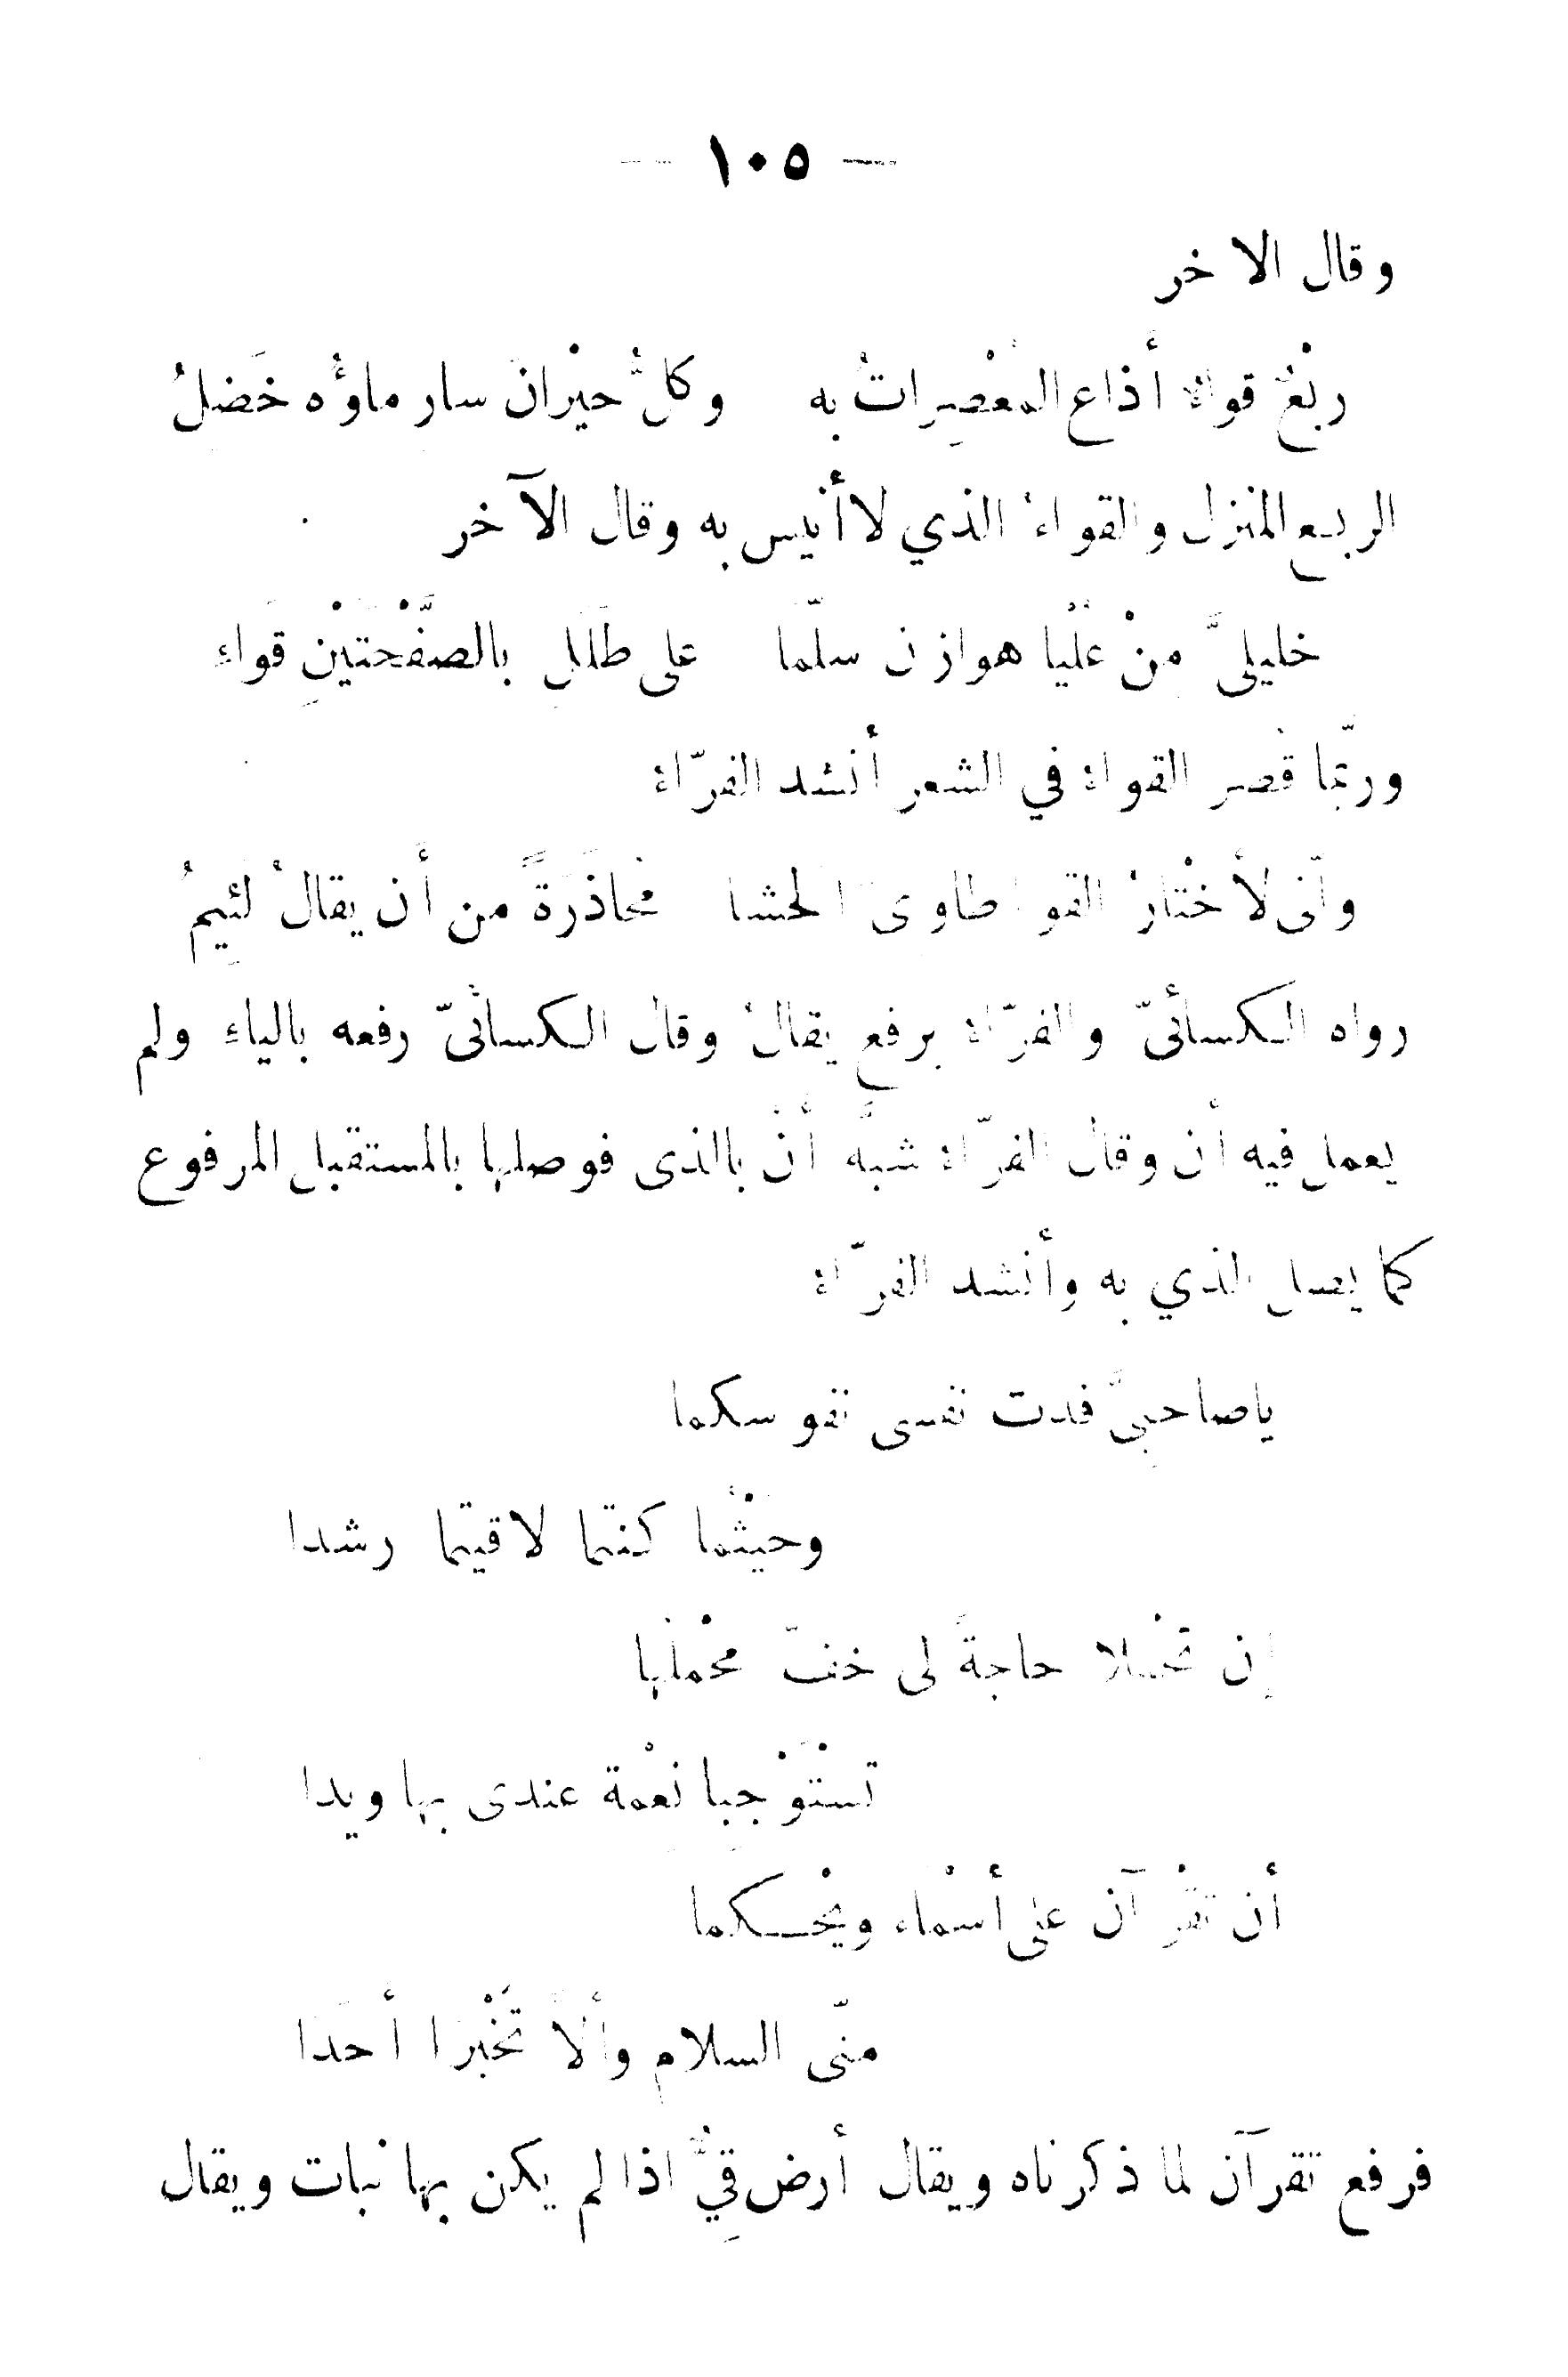 — ١٠٥ —
وقال الاخر
ربْعٌ قواءٌ أذاع المُعْصِراتُ به وكلُّ حيْرانَ سار ماؤُه خَضلُ
الربع المنزل والقواءُ الذي لا أنيس به وقال الآخر
خليليَّ منْ عُلْيا هوازن سلّما على طَلَلٍ بالصَّفْحَتَيْنِ قَواءِ
وربّما قُصر القواءُ في الشعر أنشد الفرّاءُ
وأنّى لأَخْتارُ القوا طاوىَ الحشا مُحاذَرَةً من أَن يقالُ لئيمُ
رواه الكسائىّ والفرّاءُ برفع يقالُ وقال الكسائىّ رفعه بالياء ولم
يعمل فيه أن وقال الفرّاءُ شبَّه أنْ بالذى فوصلها بالمستقبل المرفوع
كما يصل الذي به وأنشد الفرّاءُ
ياصاحبىَّ فدت نفسى نفوسكما
وحيْثُما كنتما لاقيتما رشدا
إن تحملا حاجةً لى خفّ محْمَلُها
تسْتَوْجبا نعْمة عندى بها ويدا
أن تقْرآن على أسْماء ويْحكما
منّى السلام وألاَّ تُخْبرا أَحَدَا
فرفع تقرآن لما ذكرناه ويقال أرض قِيٌّ اذا لم يكن بها نبات ويقال